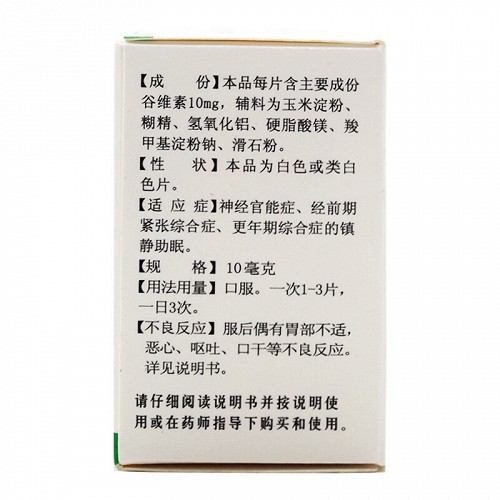 【成　份】本品每片含主要成份
谷维素10mg，辅料为玉米淀粉、
糊精、氢氧化铝、硬脂酸镁、羧
甲基淀粉钠、滑石粉。
【性　状】本品为白色或类白
色片。
【适 应 症】神经官能症、经前期
紧张综合症、更年期综合症的镇
静助眠。
【规　格】10毫克
【用法用量】口服。一次1-3片，
一日3次。
【不良反应】服后偶有胃部不适，
恶心、呕吐、口干等不良反应。
详见说明书。
请仔细阅读说明书并按说明使
用或在药师指导下购买和使用。